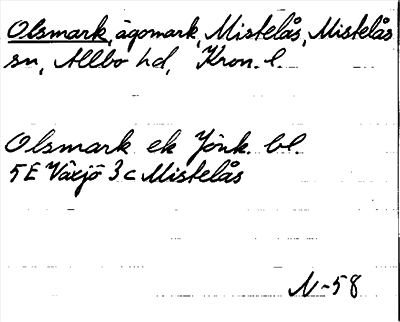 Olsmark, ägomark, Mistelås, Mistelås
sn, Allbo hd, Kron. l.
Olsmark ek Jönk. bl.
5E Växjö 3c Mistelås
N-58